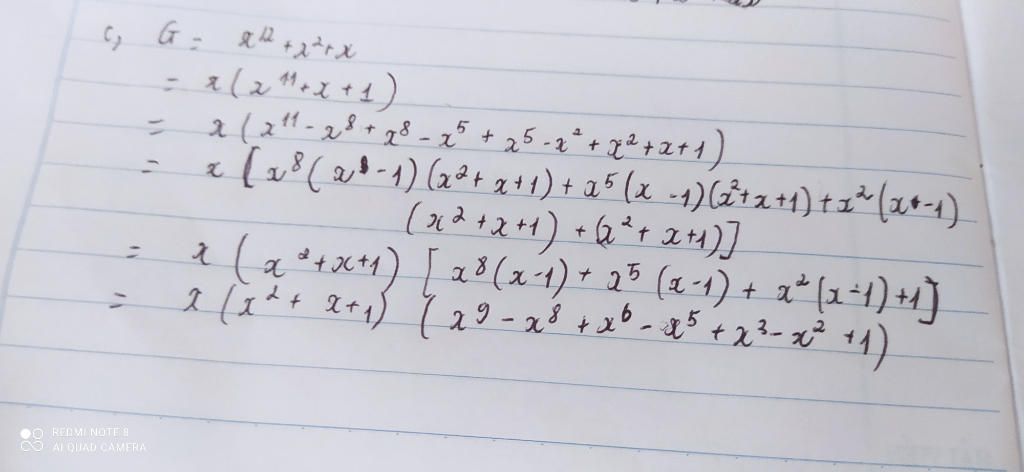 c, G = x¹² + x² + x
= x (x¹¹ + x + 1)
= x (x¹¹ - x⁸ + x⁸ - x⁵ + x⁵ - x² + x² + x + 1)
= x [x⁸ (x - 1) (x² + x + 1) + x⁵ (x - 1) (x² + x + 1) + x² (x - 1)
(x² + x + 1) + (x² + x + 1)]
= x (x² + x + 1) [x⁸ (x - 1) + x⁵ (x - 1) + x² (x - 1) + 1]
= x (x² + x + 1) (x⁹ - x⁸ + x⁶ - x⁵ + x³ - x² + 1)
REDMI NOTE 8
AI QUAD CAMERA